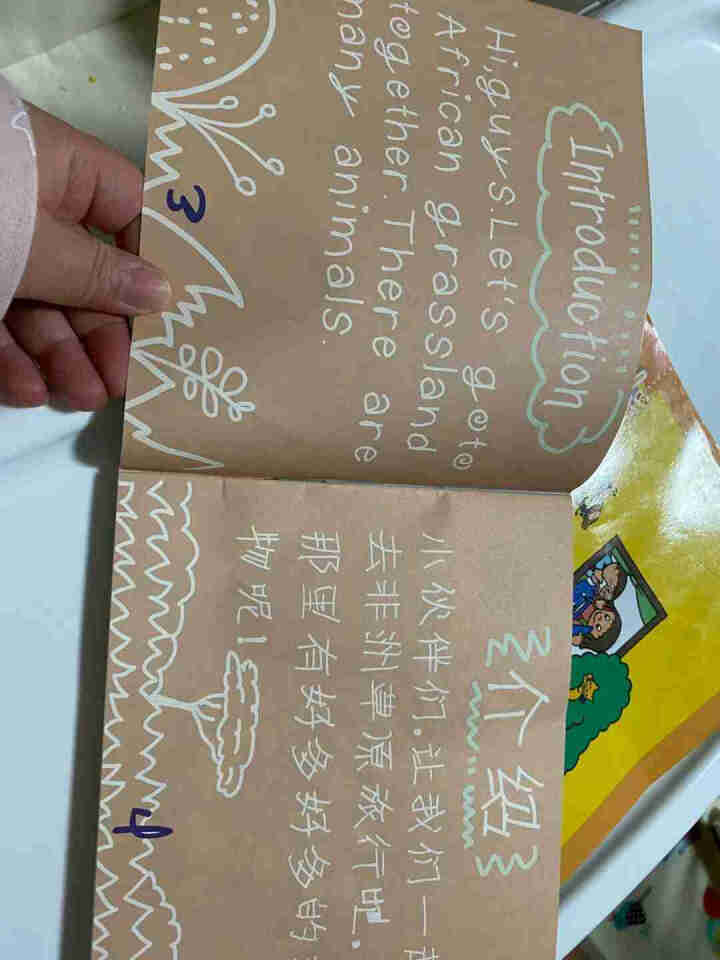 Introduction
Hi,guys.Let's goto
African grassland
together.There are
many animals.
3
介绍
小伙伴们,让我们一
去非洲草原旅行吧.
那里有好多好多的
物呢!
4